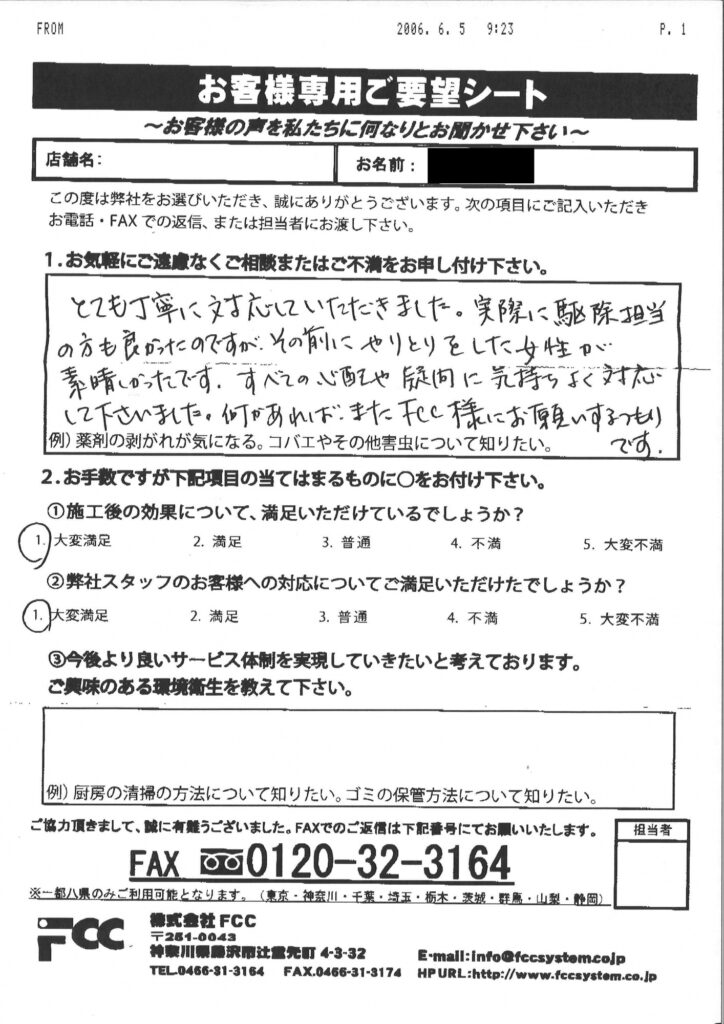 FROM 2006. 6. 5 9:23 P. 1
お客様専用ご要望シート
～お客様の声を私たちに何なりとお聞かせ下さい～
店舗名： お名前：
この度は弊社をお選びいただき、誠にありがとうございます。次の項目にご記入いただき
お電話・FAXでの返信、または担当者にお渡し下さい。
1.お気軽にご遠慮なくご相談またはご不満をお申し付け下さい。
とても丁寧に対応していただきました。実際に駆除担当
の方も良かったのですが、その前にやりとりをした女性が
素晴しかったです。すべての心配や疑問に気持ちよく対応
して下さいました。何かあれば、またFCC様にお願いするつもり
です.
例）薬剤の剥がれが気になる。コバエやその他害虫について知りたい。
2.お手数ですが下記項目の当てはまるものに○をお付け下さい。
①施工後の効果について、満足いただけているでしょうか？
1. 大変満足 2. 満足 3. 普通 4. 不満 5. 大変不満
②弊社スタッフのお客様への対応についてご満足いただけたでしょうか？
1. 大変満足 2. 満足 3. 普通 4. 不満 5. 大変不満
③今後より良いサービス体制を実現していきたいと考えております。
ご興味のある環境衛生を教えて下さい。
例）厨房の清掃の方法について知りたい。ゴミの保管方法について知りたい。
ご協力頂きまして、誠に有難うございました。FAXでのご返信は下記番号にてお願いいたします。
担当者
FAX 0120-32-3164
※一都八県のみご利用可能となります。（東京・神奈川・千葉・埼玉・栃木・茨城・群馬・山梨・静岡）
FCC
株式会社FCC
〒251-0043
神奈川県藤沢市辻堂元町 4-3-32 E-mail:info@fccsystem.co.jp
TEL.0466-31-3164 FAX.0466-31-3174 HP URL:http://www.fccsystem.co.jp